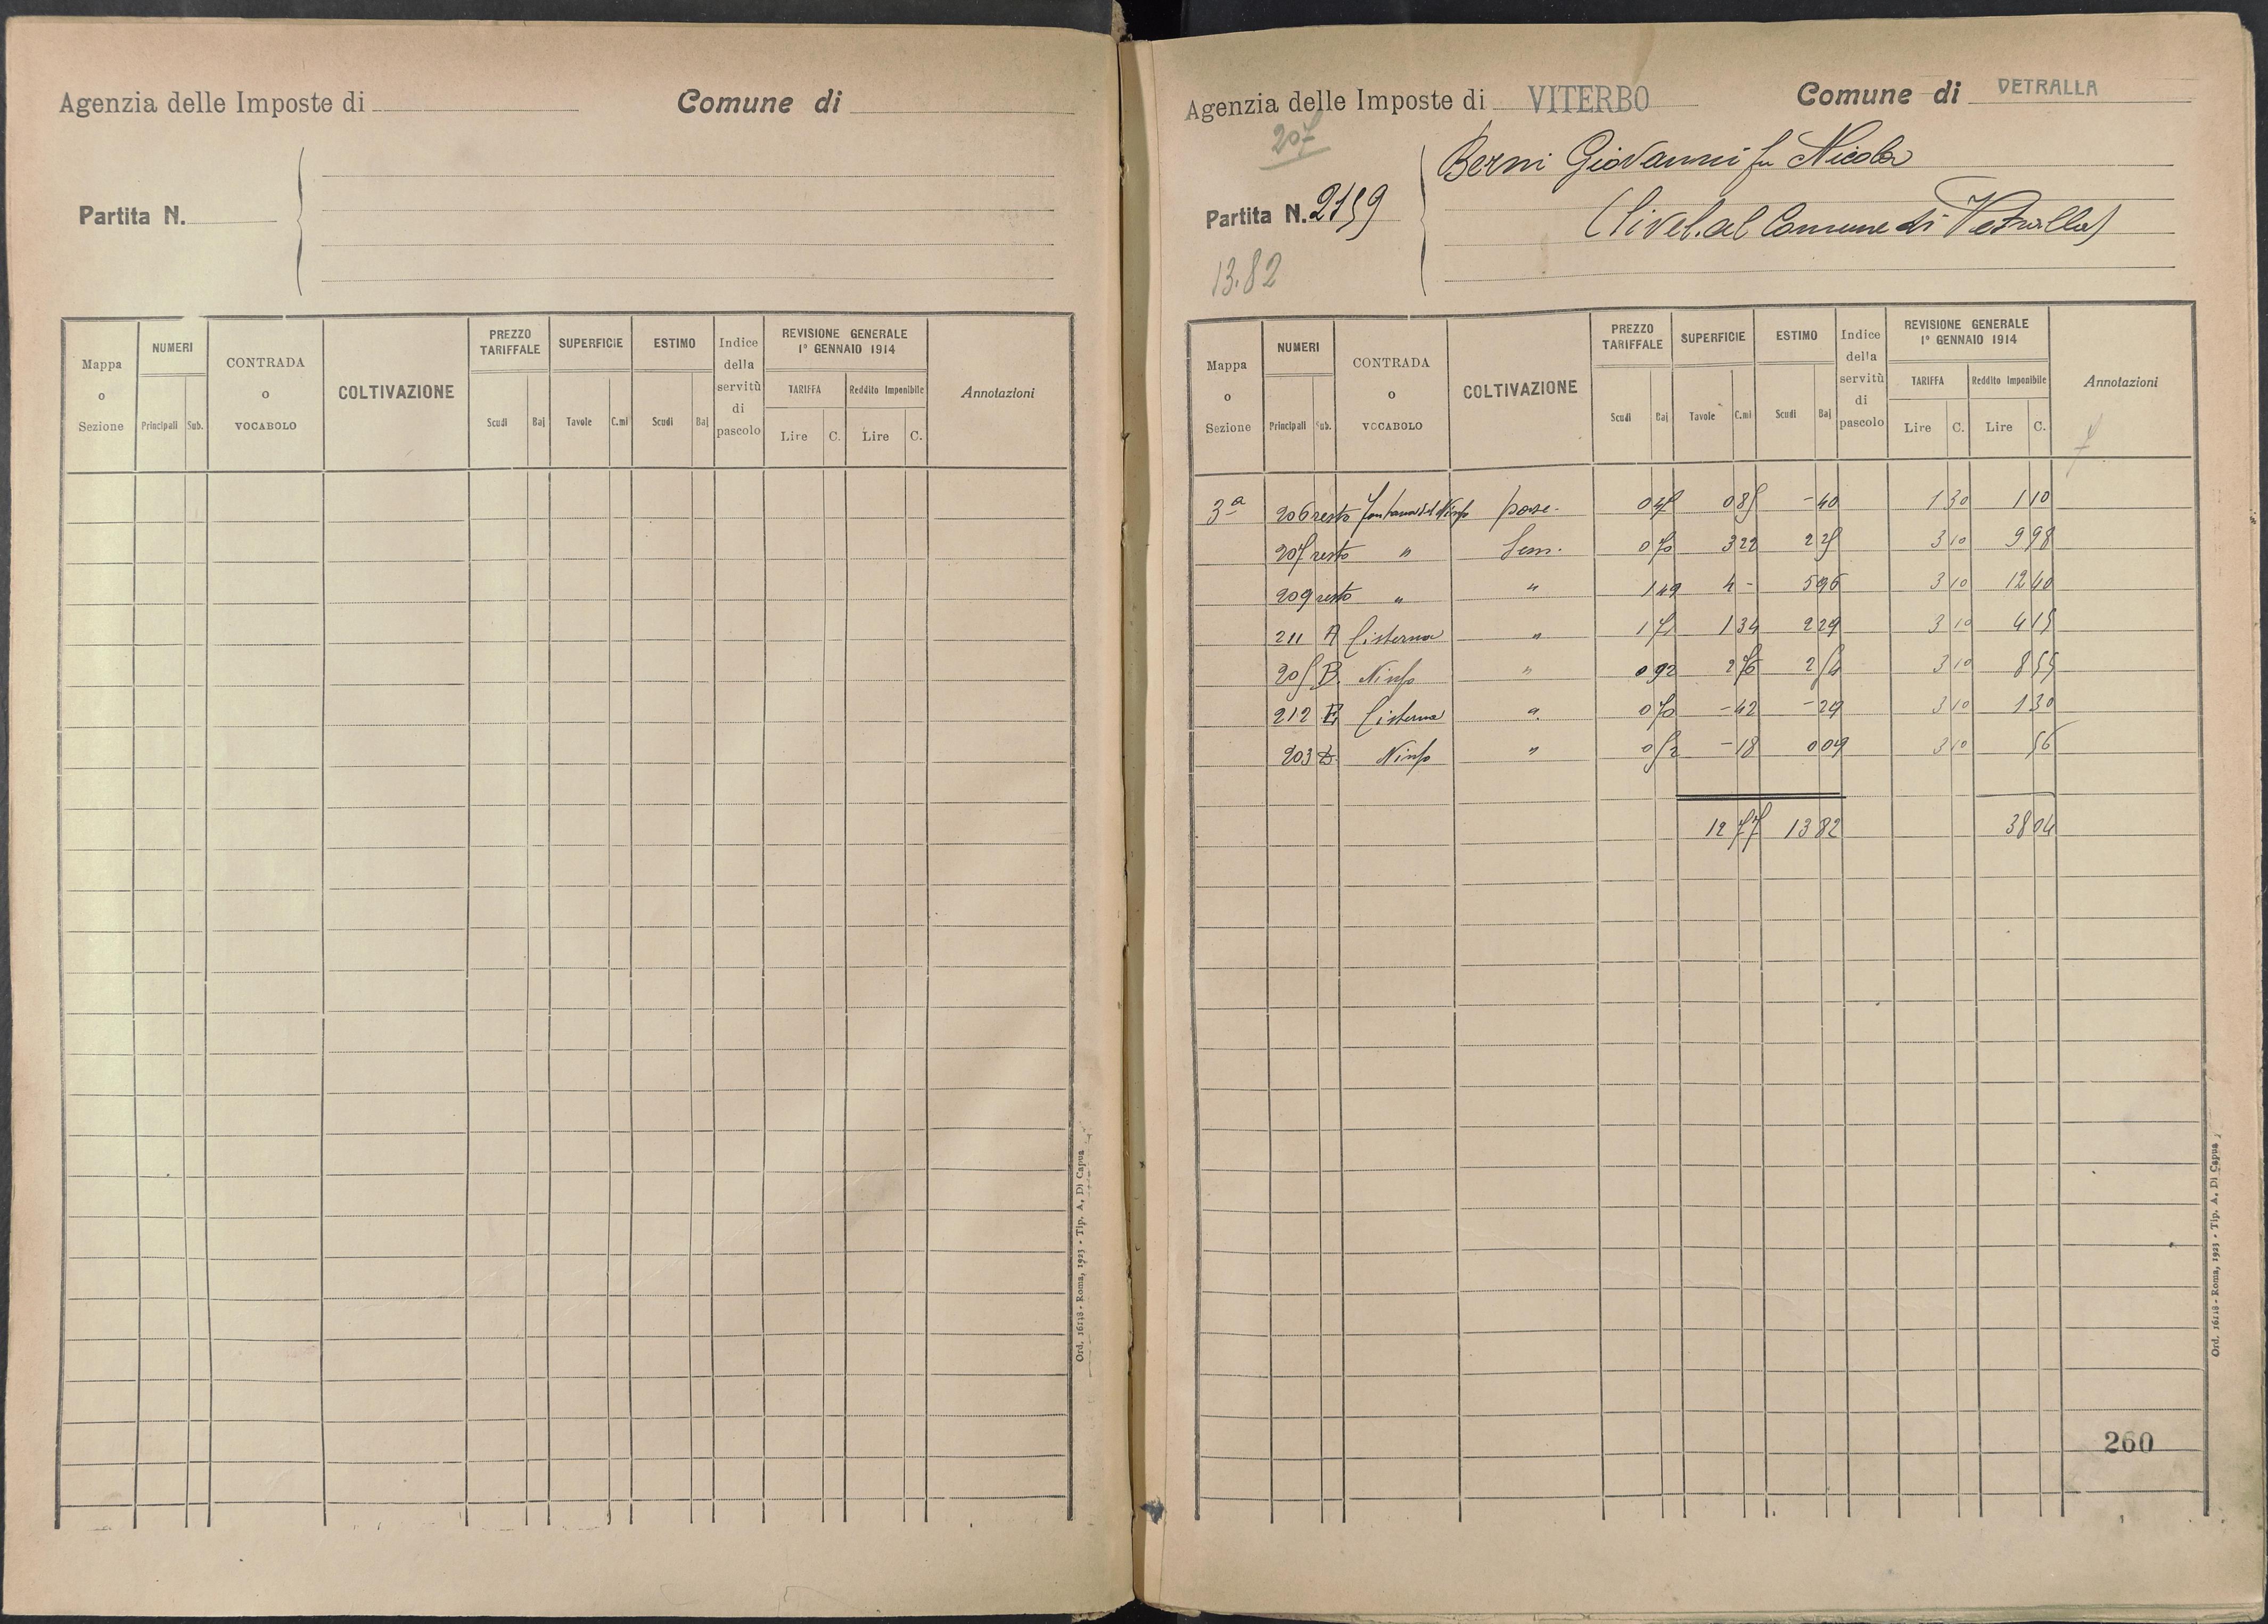 Agenzia delle Imposte di
Comune di
Partita N.
Mappa o Sezione
NUMERI
Principali Sub.
CONTRADA o VOCABOLO
COLTIVAZIONE
PREZZO TARIFFALE
Scudi Baj
SUPERFICIE
Tavole C.mi
ESTIMO
Scudi Baj
Indice della servitù di pascolo
REVISIONE GENERALE 1° GENNAIO 1914
TARIFFA
Lire C.
Reddito Imponibile
Lire C.
Annotazioni
Ord. 16118 - Roma, 1923 - Tip. A. Di Capua
Agenzia delle Imposte di VITERBO
Comune di VETRALLA
207
Berni Giovanni fu Nicola
Partita N. 2159
(livel. al Comune di Vetralla)
13.82
Mappa o Sezione
NUMERI
Principali Sub.
CONTRADA o VOCABOLO
COLTIVAZIONE
PREZZO TARIFFALE
Scudi Baj
SUPERFICIE
Tavole C.mi
ESTIMO
Scudi Baj
Indice della servitù di pascolo
REVISIONE GENERALE 1° GENNAIO 1914
TARIFFA
Lire C.
Reddito Imponibile
Lire C.
Annotazioni
3a 206 resto Fontana del Ninfo 0 47 0 85 - 40 1 30 1 10
207 resto " Sem. 0 70 3 22 2 25 3 10 9 98
209 resto " " 1 49 4 - 5 96 3 10 12 40
211 A Cisterna " 1 71 1 34 2 29 3 10 4 15
205 B Ninfo " 0 92 2 76 2 54 3 10 8 55
212 Cisterna " 0 70 - 42 - 29 3 10 1 30
203 Ninfo " 0 52 - 18 0 09 3 10 56
12 77 13 82 38 04
260
Ord. 16118 - Roma, 1923 - Tip. A. Di Capua